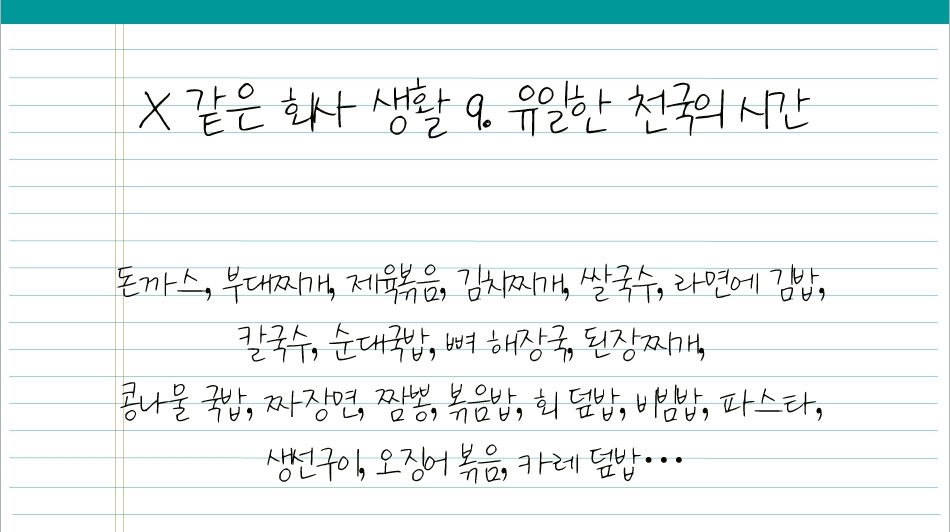 X 같은 회사 생활 9. 유일한 천국의 시간
돈까스, 부대찌개, 제육볶음, 김치찌개, 쌀국수, 라면에 김밥,
칼국수, 순대국밥, 뼈 해장국, 된장찌개,
콩나물 국밥, 짜장면, 짬뽕, 볶음밥, 회 덮밥, 비빔밥, 파스타,
생선구이, 오징어 볶음, 카레 덮밥•••